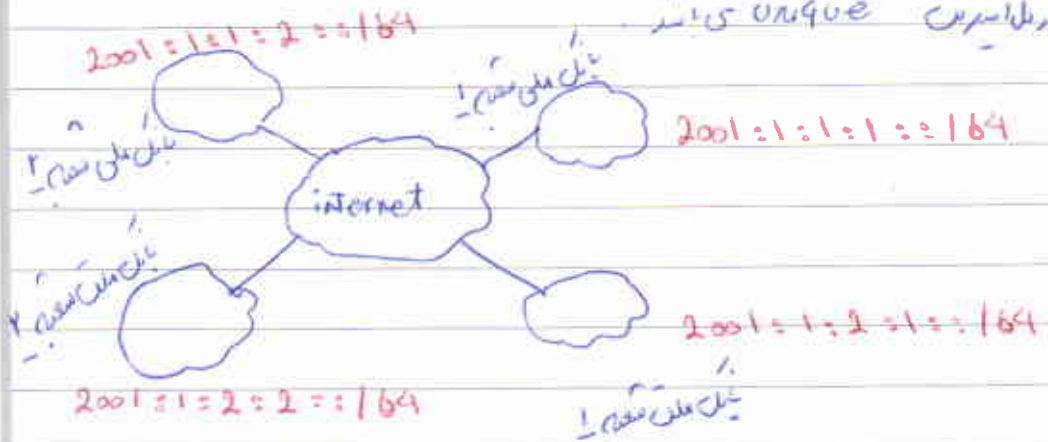 unique می باشد.
2001:1:1:2::/64
بانک ملی شعبه ۱
2001:1:1:1::/64
بانک ملی شعبه ۲
internet
بانک ملت شعبه ۲
2001:1:2:1::/64
2001:1:2:2::/64
بانک ملت شعبه ۱